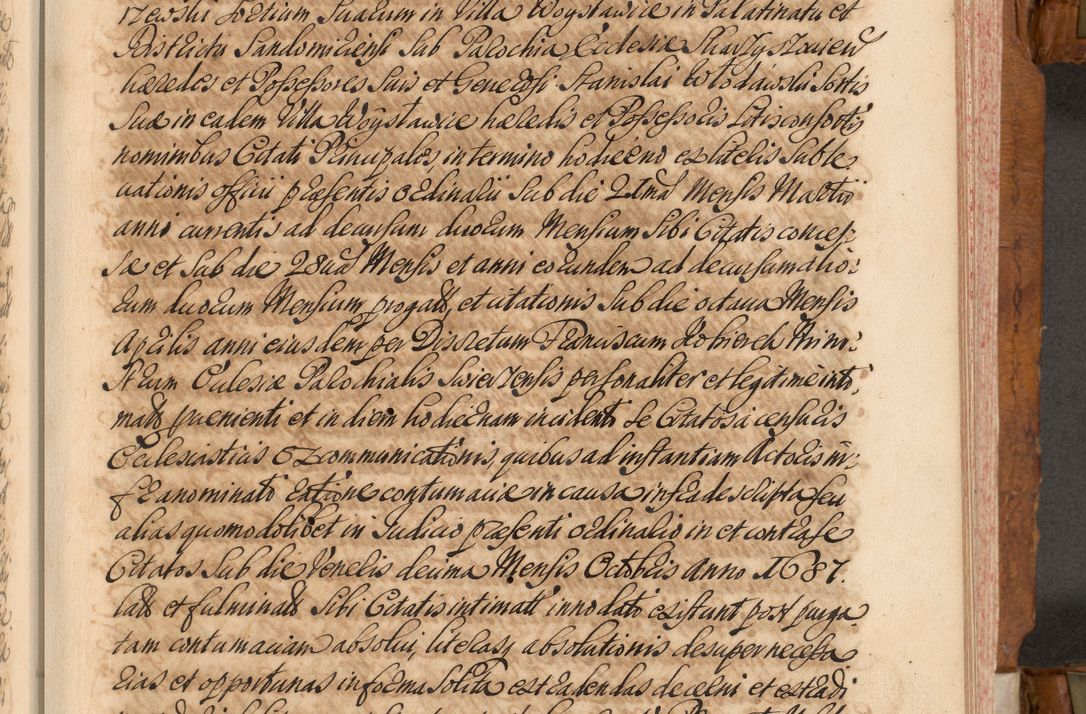 rzewski Sortium Suarum in Villa Woysławice in Palatinatu et
Districtu Sandomiriensi sub Parochia Ecclesiæ Skarzyszovien
hæredes et Possessores suis et Generosi Stanislai Włodawski Sortis
suæ in eadem Villa Woysławice hæredis et Possessoris Litisconsortis
nominibus Citati Principales, in termino hodierno ex literis suble
vationis officii præsentis ordinarii sub die 22nd Mensis Martii
anni currentis ad decursum duorum Mensium sibi Citatis conces
sæ et sub die 28va Mensis et anni eorundem ad decursum alio:
rum duorum Mensium progatt, et citationis sub die octava Mensis
Aprilis anni eiusdem per Discretum Franciscum Kobierek Mini:
strum Ecclesiæ Parochialis personaliter et legitime inti
matt provenienti et in diem hodiernam incidenti se Citatos a censuris
Ecclesiasticis Excommunicationis, quibus ad instantiam Actoris in:
franominati ratione contumaciæ in causa infra descripta seu
alias quomodolibet in Judicio præsenti ordinario in et contra se
Citatos sub die Veneris decima Mensis Octobris Anno 1687.
latt et fulminatt sibi Citatis intimatt innodati existunt post purga
tam contumaciam absolui, literasq absolutionis desuper necessa
rias et opportunas in forma solita extradendas decerni et extradi